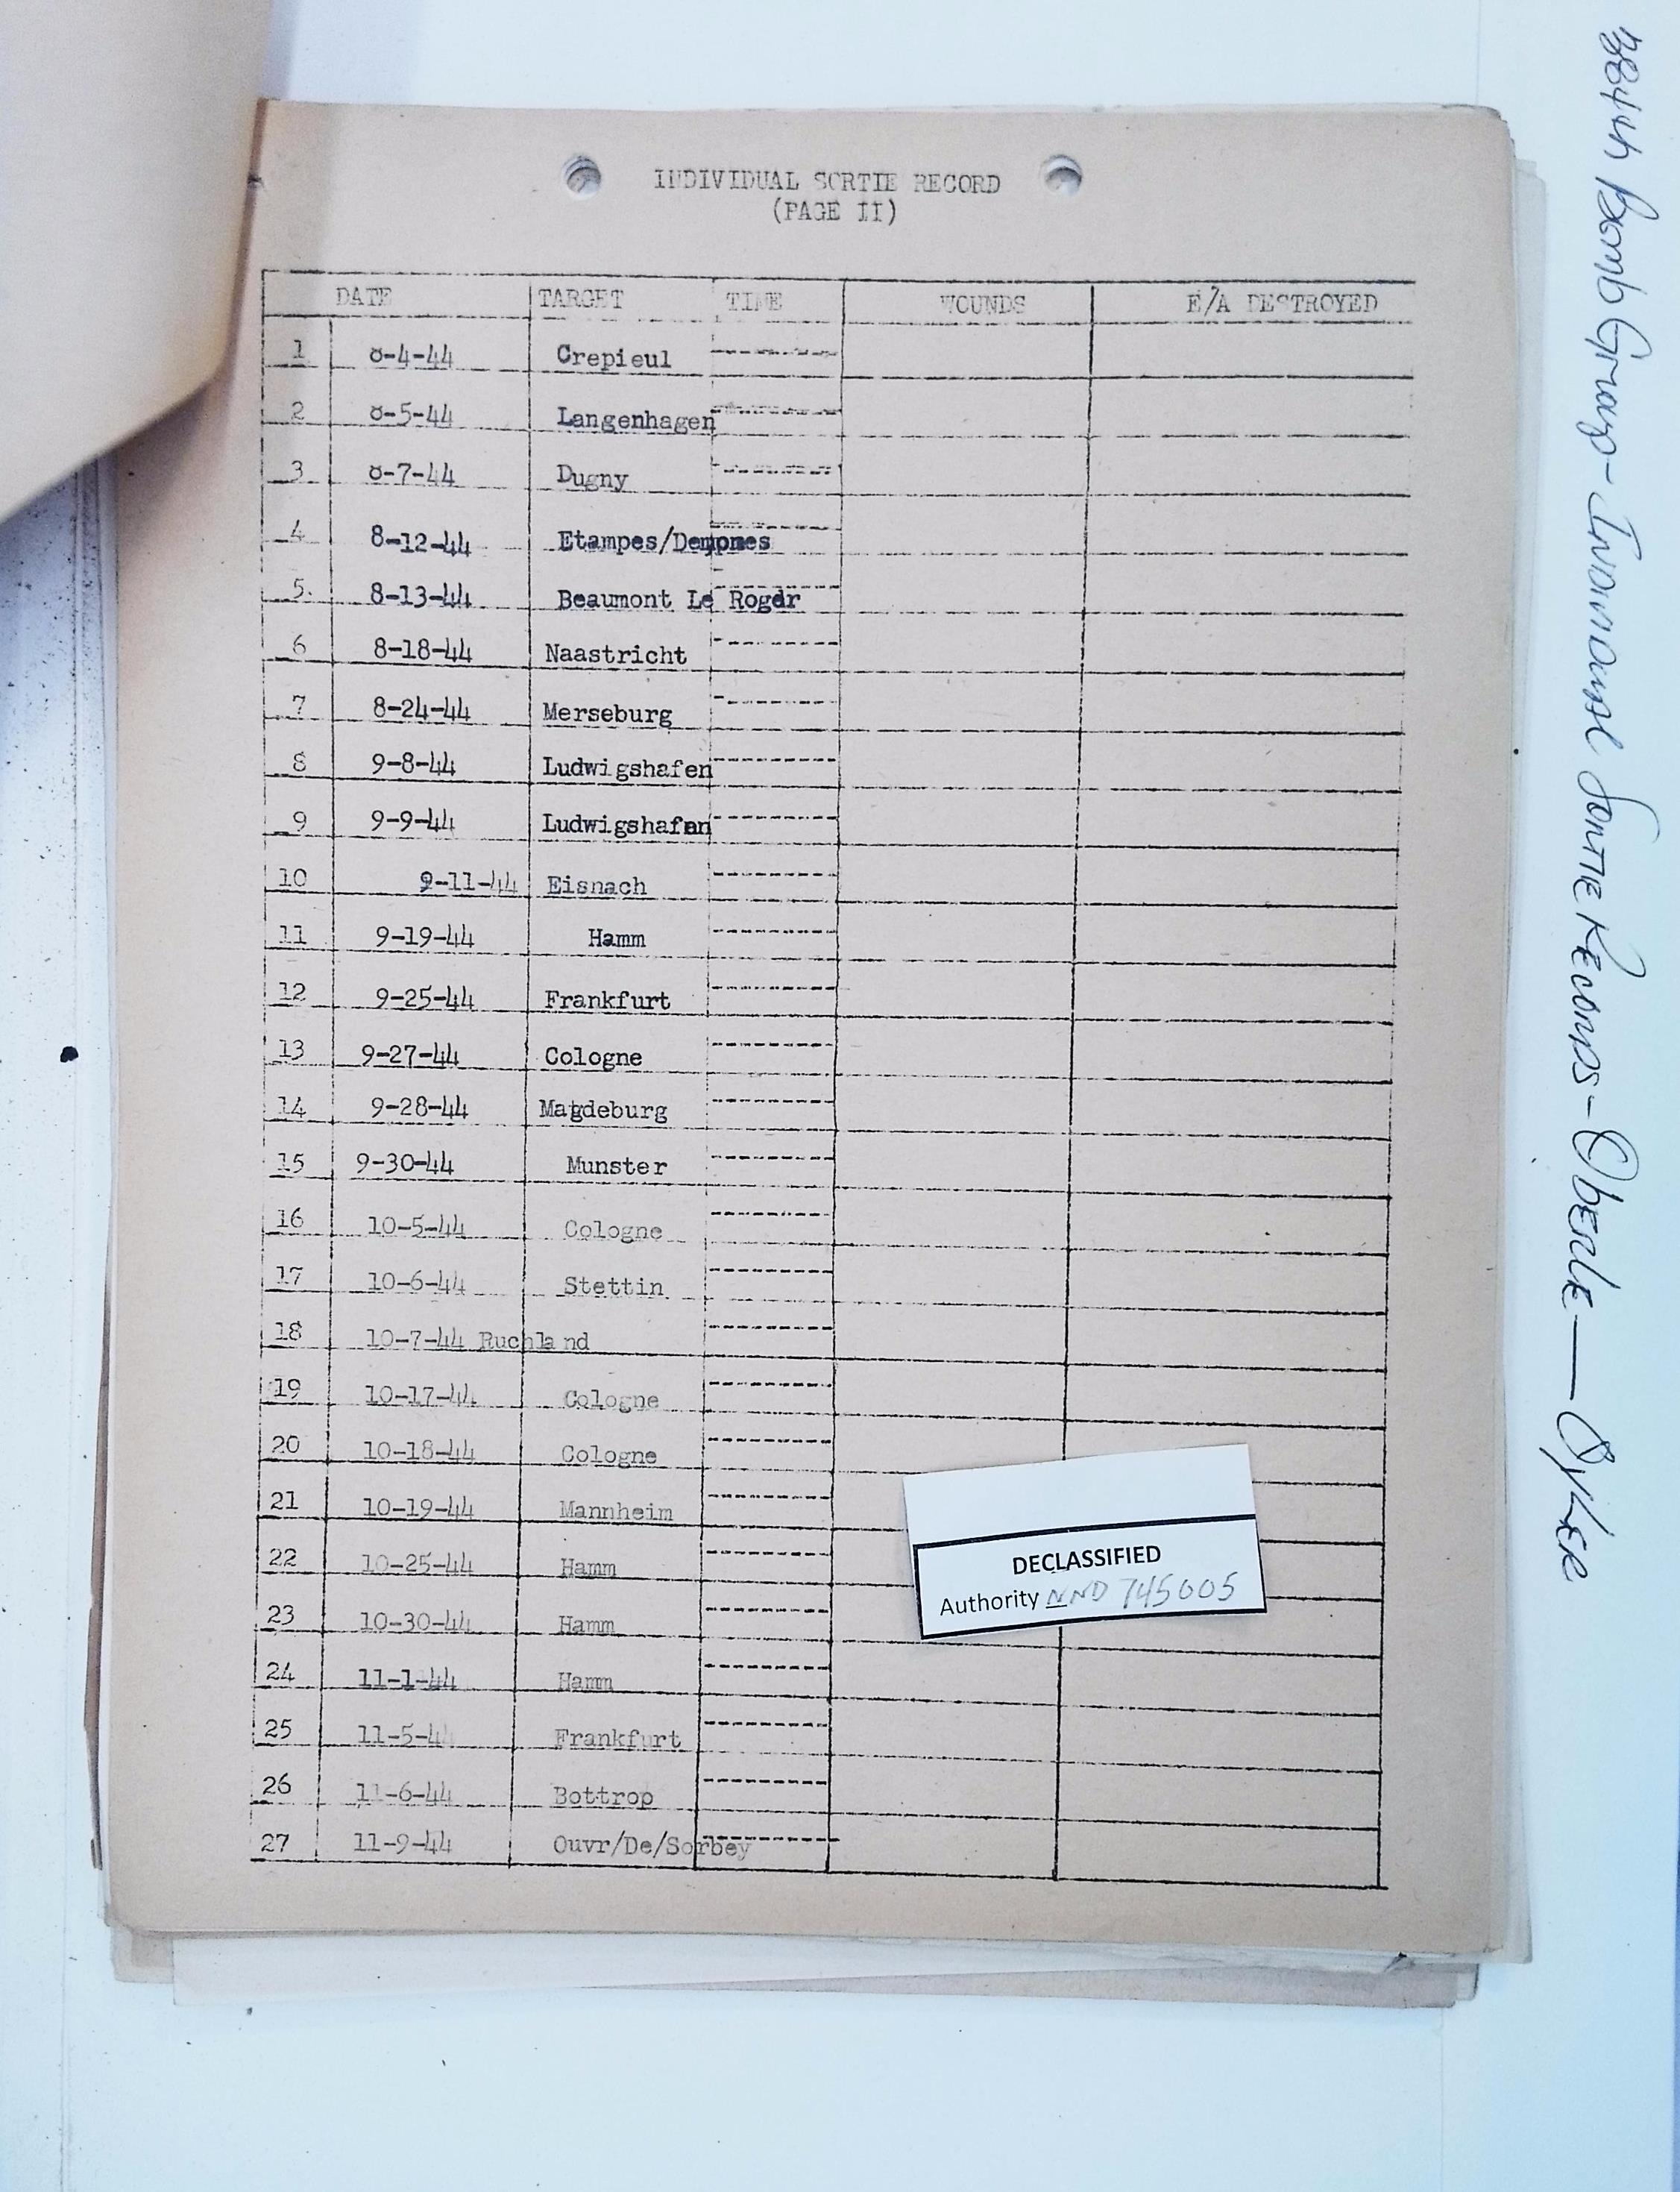 INDIVIDUAL SORTIE RECORD
(PAGE II)
DATE TARGET TIME WOUNDS E/A DESTROYED
1 8-4-44 Crepieul
2 8-5-44 Langenhagen
3 8-7-44 Dugny
4 8-12-44 Etampes/
5. 8-13-44 Beaumont Le Roger
6 8-18-44 Naastricht
7 8-24-44 Merseburg
8 9-8-44 Ludwigshafen
9 9-9-44 Ludwigshafen
10 9-11-44 Eisnach
11 9-19-44 Hamm
12 9-25-44 Frankfurt
13 9-27-44 Cologne
14 9-28-44 Magdeburg
15 9-30-44 Munster
16 10-5-44 Cologne
17 10-6-44 Stettin
18 10-7-44 Ruchland
19 10-17-44 Cologne
20 10-18-44 Cologne
21 10-19-44 Mannheim
22 10-25-44 Hamm
23 10-30-44 Hamm
24 11-1-44 Hamm
25 11-5-44 Frankfurt
26 11-6-44 Bottrop
27 11-9-44 Ouvr/De/Sorbey
DECLASSIFIED
Authority NND 745005
384th Bomb Group - Individual Sortie Records - Oberle — Oyler